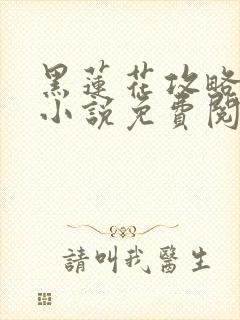 黑蓮花攻略
小說免費閱
請叫我醫生